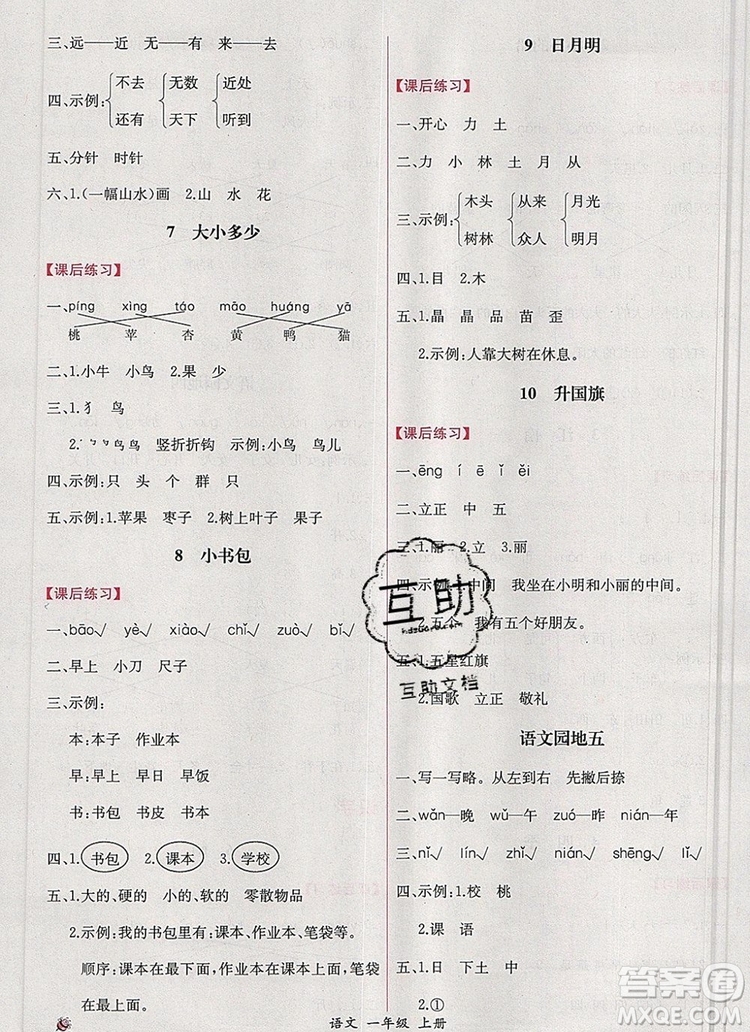 三、远——近 无——有 来——去
四、示例:{不去 还有 {无数 天下 {近处 听到
五、分针 时针
六、1.(一幅山水)画 2.山 水 花
7 大小多少
【课后练习】
一、píng xìng táo māo huáng yā
桃 苹 杏 黄 鸭 猫
二、1.小牛 小鸟 2.果 少
三、1.犭 鸟
四、示例:只 头 个 群 只
五、示例:1.苹果 枣子 2.树上叶子 果子
8 小书包
【课后练习】
一、bāo√ yè√ xiào√ chǐ√ zuò√ bǐ√
二、早上 小刀 尺子
三、示例:
本:本子 作业本
早:早上 早日 早饭
书:书包 书皮 书本
四、1.书包 2.课本 3.学校
五、1.大的、硬的 小的、软的 零散物品
2.示例:我的书包里有:课本、作业本、笔袋等。
顺序:课本在最下面,作业本在课本上面,笔袋
在最上面。
9 日月明
【课后练习】
一、开心 力 土
二、力 小 林 土 月 从
三、示例:{木头 树林 {从来 众人 {月光 明月
四、1.目 2.木
五、1.晶 晶 品 苗 歪
2.示例:人靠大树在休息。
10 升国旗
【课后练习】
一、ēng í ē ǐ ěi
二、立正 中 五
三、1.丽 2.立 3.丽
四、示例:1.中间 我坐在小明和小丽的中间。
2.五个 我有五个好朋友。
五、1.五星红旗
2.国歌 立正 敬礼
语文园地五
一、写一写略。从左到右 先撇后捺
二、wǎn—晚 wǔ—午 zuó—昨 nián—年
三、nǐ√ lín√ nián√ shēng√ lì√
四、示例:1.校 桃
2.课 语
五、1.日 下土 中
2.①
语文 一年级 上册
互助
hdzuoru.com
互助文档
答案圈
MXQE.COM